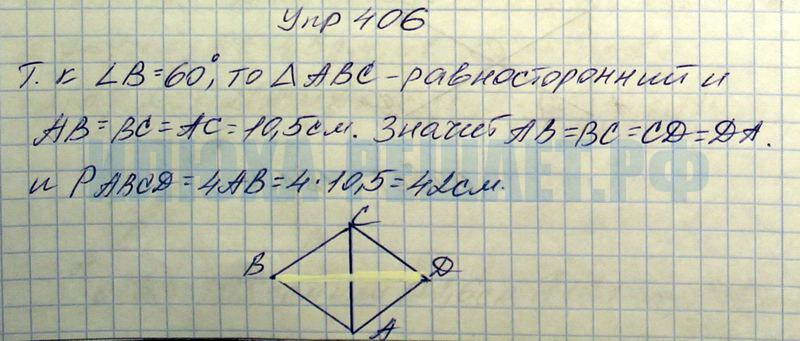 Упр 406
Т. к ∠B=60°, то △ABC - равносторонний и
AB=BC=AC=10,5см. Значит AB=BC=CD=DA.
и PABCD=4AB=4·10,5=42см.
C
B
D
A